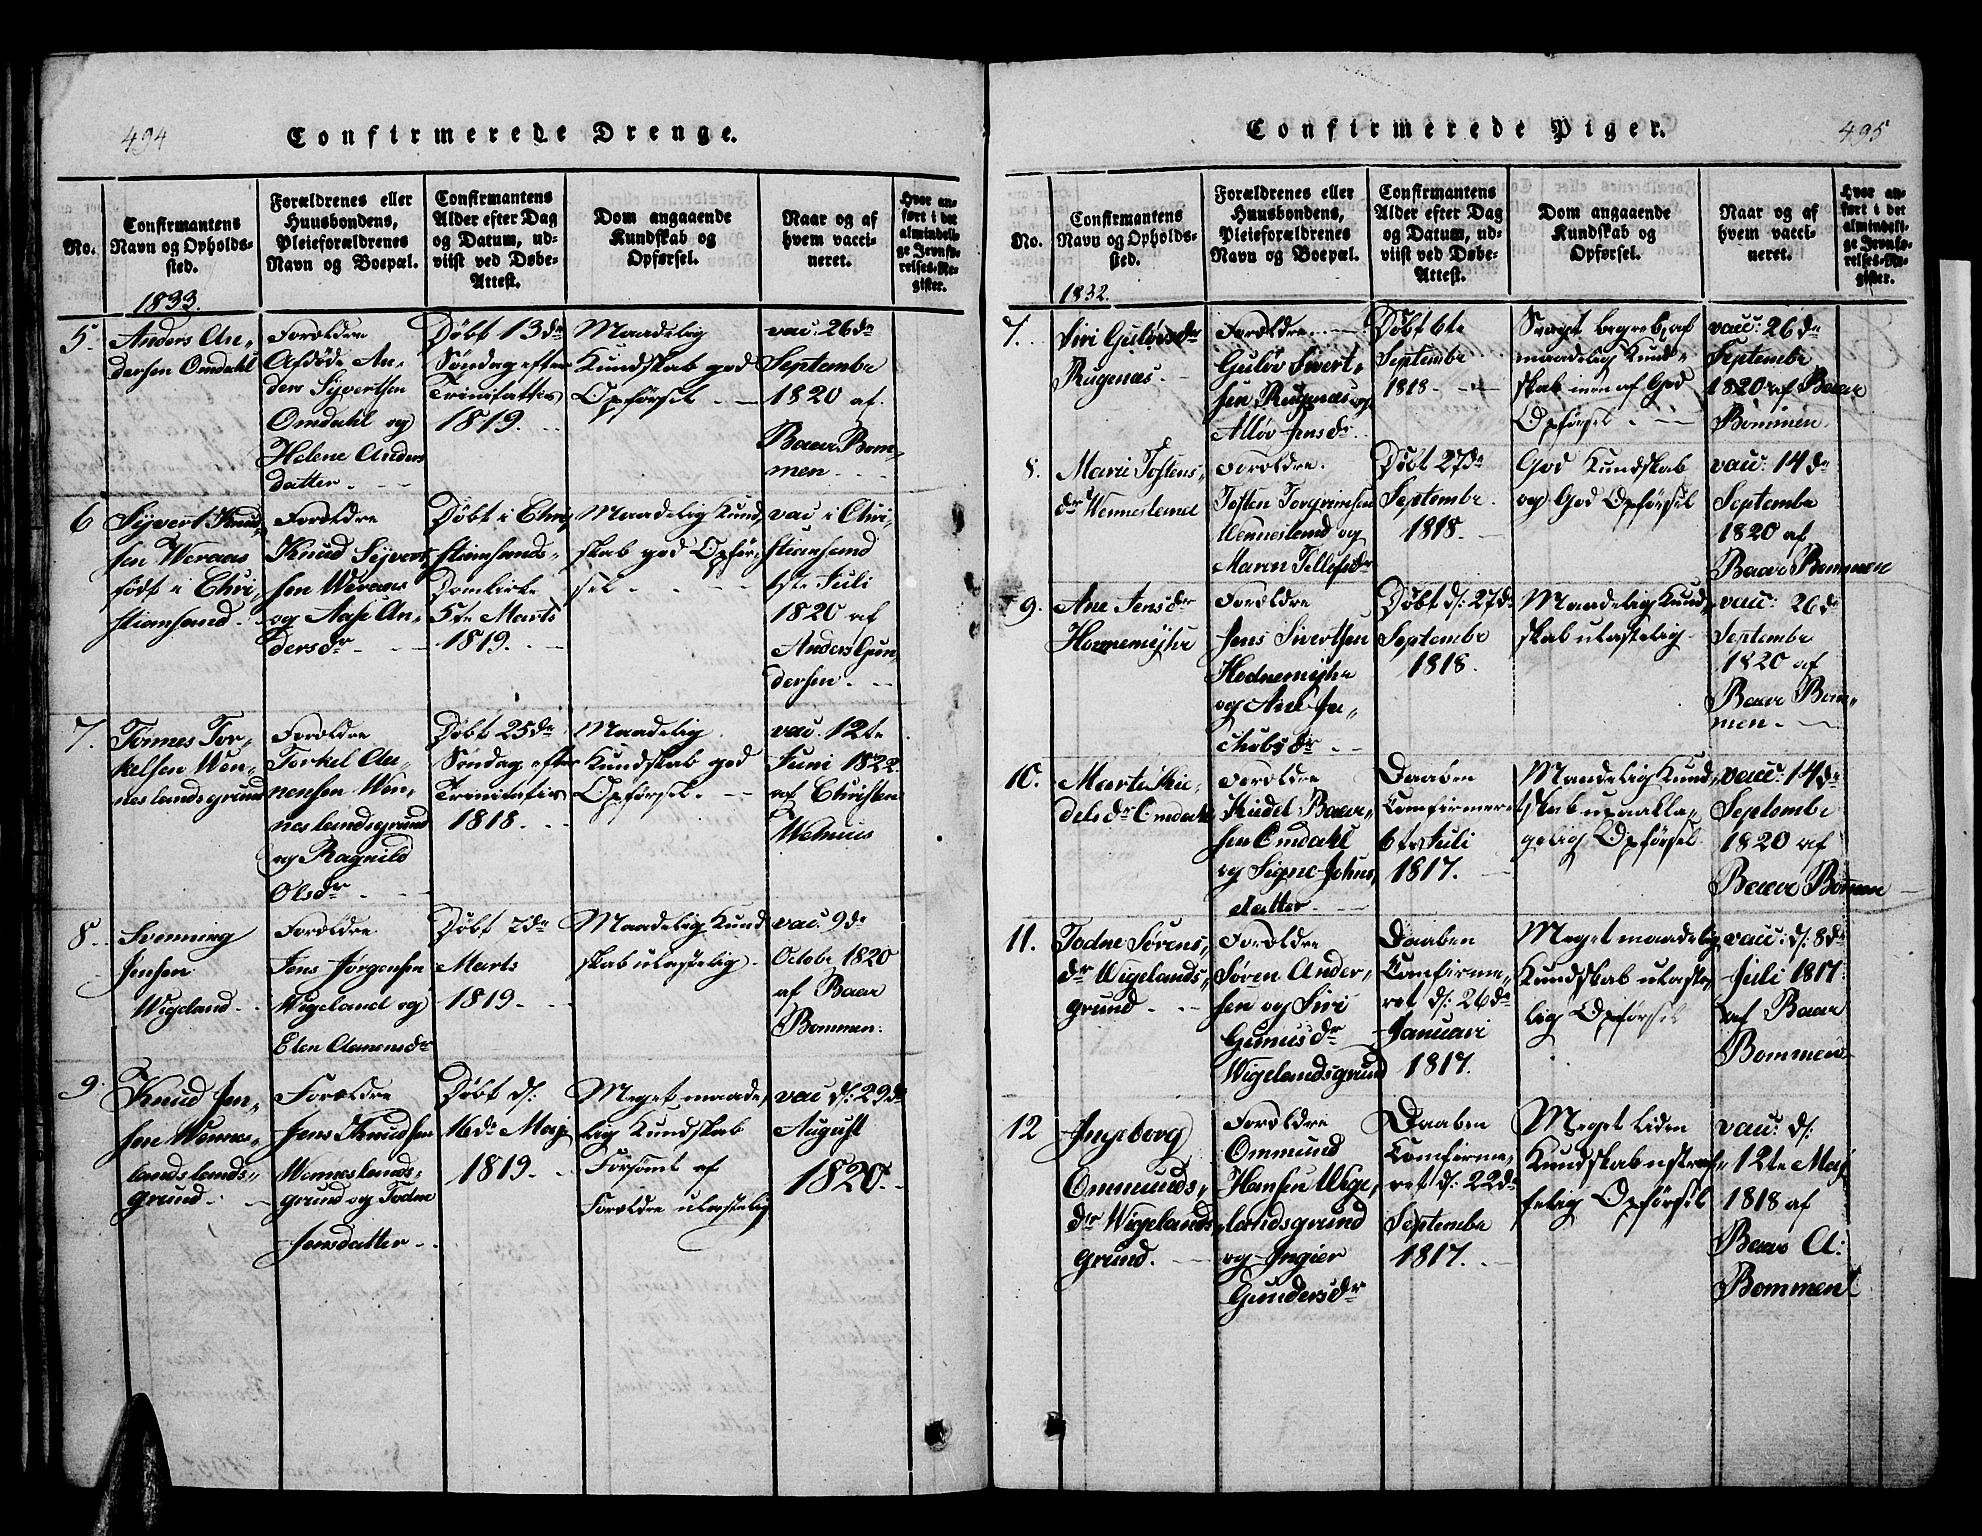 494
Confirmerede Drenge.
No.
Confirmantens
Navn og Opholds-
sted.
Forældrenes eller
Huusbondens,
Pleieforældrenes
Navn og Boepæl.
Confirmantens
Alder efter Dag
og Datum, ud-
viist ved Døbe-
Attest.
Dom angaaende
Kundskab og
Opførsel.
Naar og af
hvem vacci-
neret.
Hvor an-
ført i det
almindeli-
ge Jevnfø-
relses-Re-
gister.
1833.
5.
Anders An-
dersen Omdahl
Forældre
Afdøde An-
ders Syvertsen
Omdahl og
Helene Anders
datter.
Døbt 13de
Søndag efter
Trinitattis
1819.
Maadelig
Kundskab god
Opførsel.
vac. 26de
Septembr
1820 af.
Baar Bom-
men.
6
Syvert Knud
sen Weraas
født i Chri-
stiansand.
Forældre
Knud Syvert
sen Weraas
og Aase An-
dersdr
Døbt i Chri
stiansands-
Domkirke
5te Marts
1819.
Maadelig Kund
skab god Opfør-
sel.
vac i Chri-
stiansand
1ste Juli
1820 af
Anders Gun
dersen.
7.
Tønnes Tor-
kelsen Wen-
neslandsgrund
Forældre
Torkel An-
nensen Wen-
neslandsgrund
og Ragnild
Olsdr
Døbt 25de
Søndag efter
Trinitatis
1818.
Maadelig
Kundskab god
Opførsel.
vac. 12te
Juni 1822.
af Christen
Welnius
8.
Svenning
Jensen
Wigeland.
Forældre
Jens Jørgensen
Wigeland og
Elen Aanensdr
Døbt 2de
Marts
1819.
Maadelig Kund
skab ulastelig.
vac. 9de
Octobr 1820
af Baar
Bommen.
9.
Knud Jen-
sen Wennes-
landslands-
grund
Forældre
Jens Knudsen
Wenneslands-
grund og Todne
Jensdatter.
Døbt d:
16de Maj
1819.
Meget maade-
lig Kundskab
Forsømt af
Forældre ulastelig
vac d: 29de
August
1820.
495
Confirmerede Piger.
No.
Confirmantens
Navn og Opholds-
sted.
Forældrenes eller
Huusbondens,
Pleieforældrenes
Navn og Boepæl.
Confirmantens
Alder efter Dag
og Datum, ud-
viist ved Døbe-
Attest.
Dom angaaende
Kundskab og
Opførsel.
Naar og af
hvem vacci-
neret.
Hvor an-
ført i det
almindeli-
ge Jevnfø-
relses-Re-
gister.
1832.
7.
Siri Guløvsdr
Rugenæs.
Forældre
Guløv Sivert-
sen Rugenæs og
Alløv Jensdr.
Døbt 6te
Septembr
1818.
Svagt begreb, af
maadelig Kund-
skab men af God
Opførsel.
vac: 26de
Septembr
1820 af Baar
Bommen.
8.
Marie Tostens-
dr Wennesland
Forældre.
Tosten Torgrimsen
Wennesland og
Maren Tellefsdr
Døbt 27de
Septembr.
1818.
God Kundskab
og God Opførsel
vac: 14de
Septembr
1820 af
Baar Bommen
9.
Ane Jensdr
Honnemyhr
Forældre
Jens Sivertsen
Hodnemyhr
og Ane Ja-
chobsdr
Døbt d: 27de
Septembr
1818.
Maadelig Kund
skab ulastelig
vac: 26de
Septembr
1820 af
Baar Bom-
men.
10.
Marte Kie-
delsdr Omdahl
Forældre
Kiedel Baar-
sen Omdahl
og Signe Johns
datter.
Daaben
Comfirmeret
6te Juli
1817.
Maadelig Kund-
skab upaakla-
gelig Opførsel
vac: 14de
Septembr
1820 af
Baar Bommen
11.
Todne Sørens-
dr Wigelands-
grund.
Forældre
Søren Ander-
sen og Siri
Gunnusdr
Wigelandsgrund
Daaben
Comfirme-
ret d: 26de
Januari
1817.
Meget maadelig
Kundskab ulaste-
lig Opførsel
vac: d: 8de
Juli 1817
af Baar
Bommen
12
Ingeborg
Ommunds-
dr Wigelands
grund.
Forældre
Ommund
Hansen Wige-
landsgrund
og Ingier
Gundersdr
Daaben
Comfirme-
ret d: 22de
Septembr
1817.
Meget liden
Kundskab ustraf-
felig Opførsel
vac: d:
12te Maj
1818 af
Baar A:
Bommen